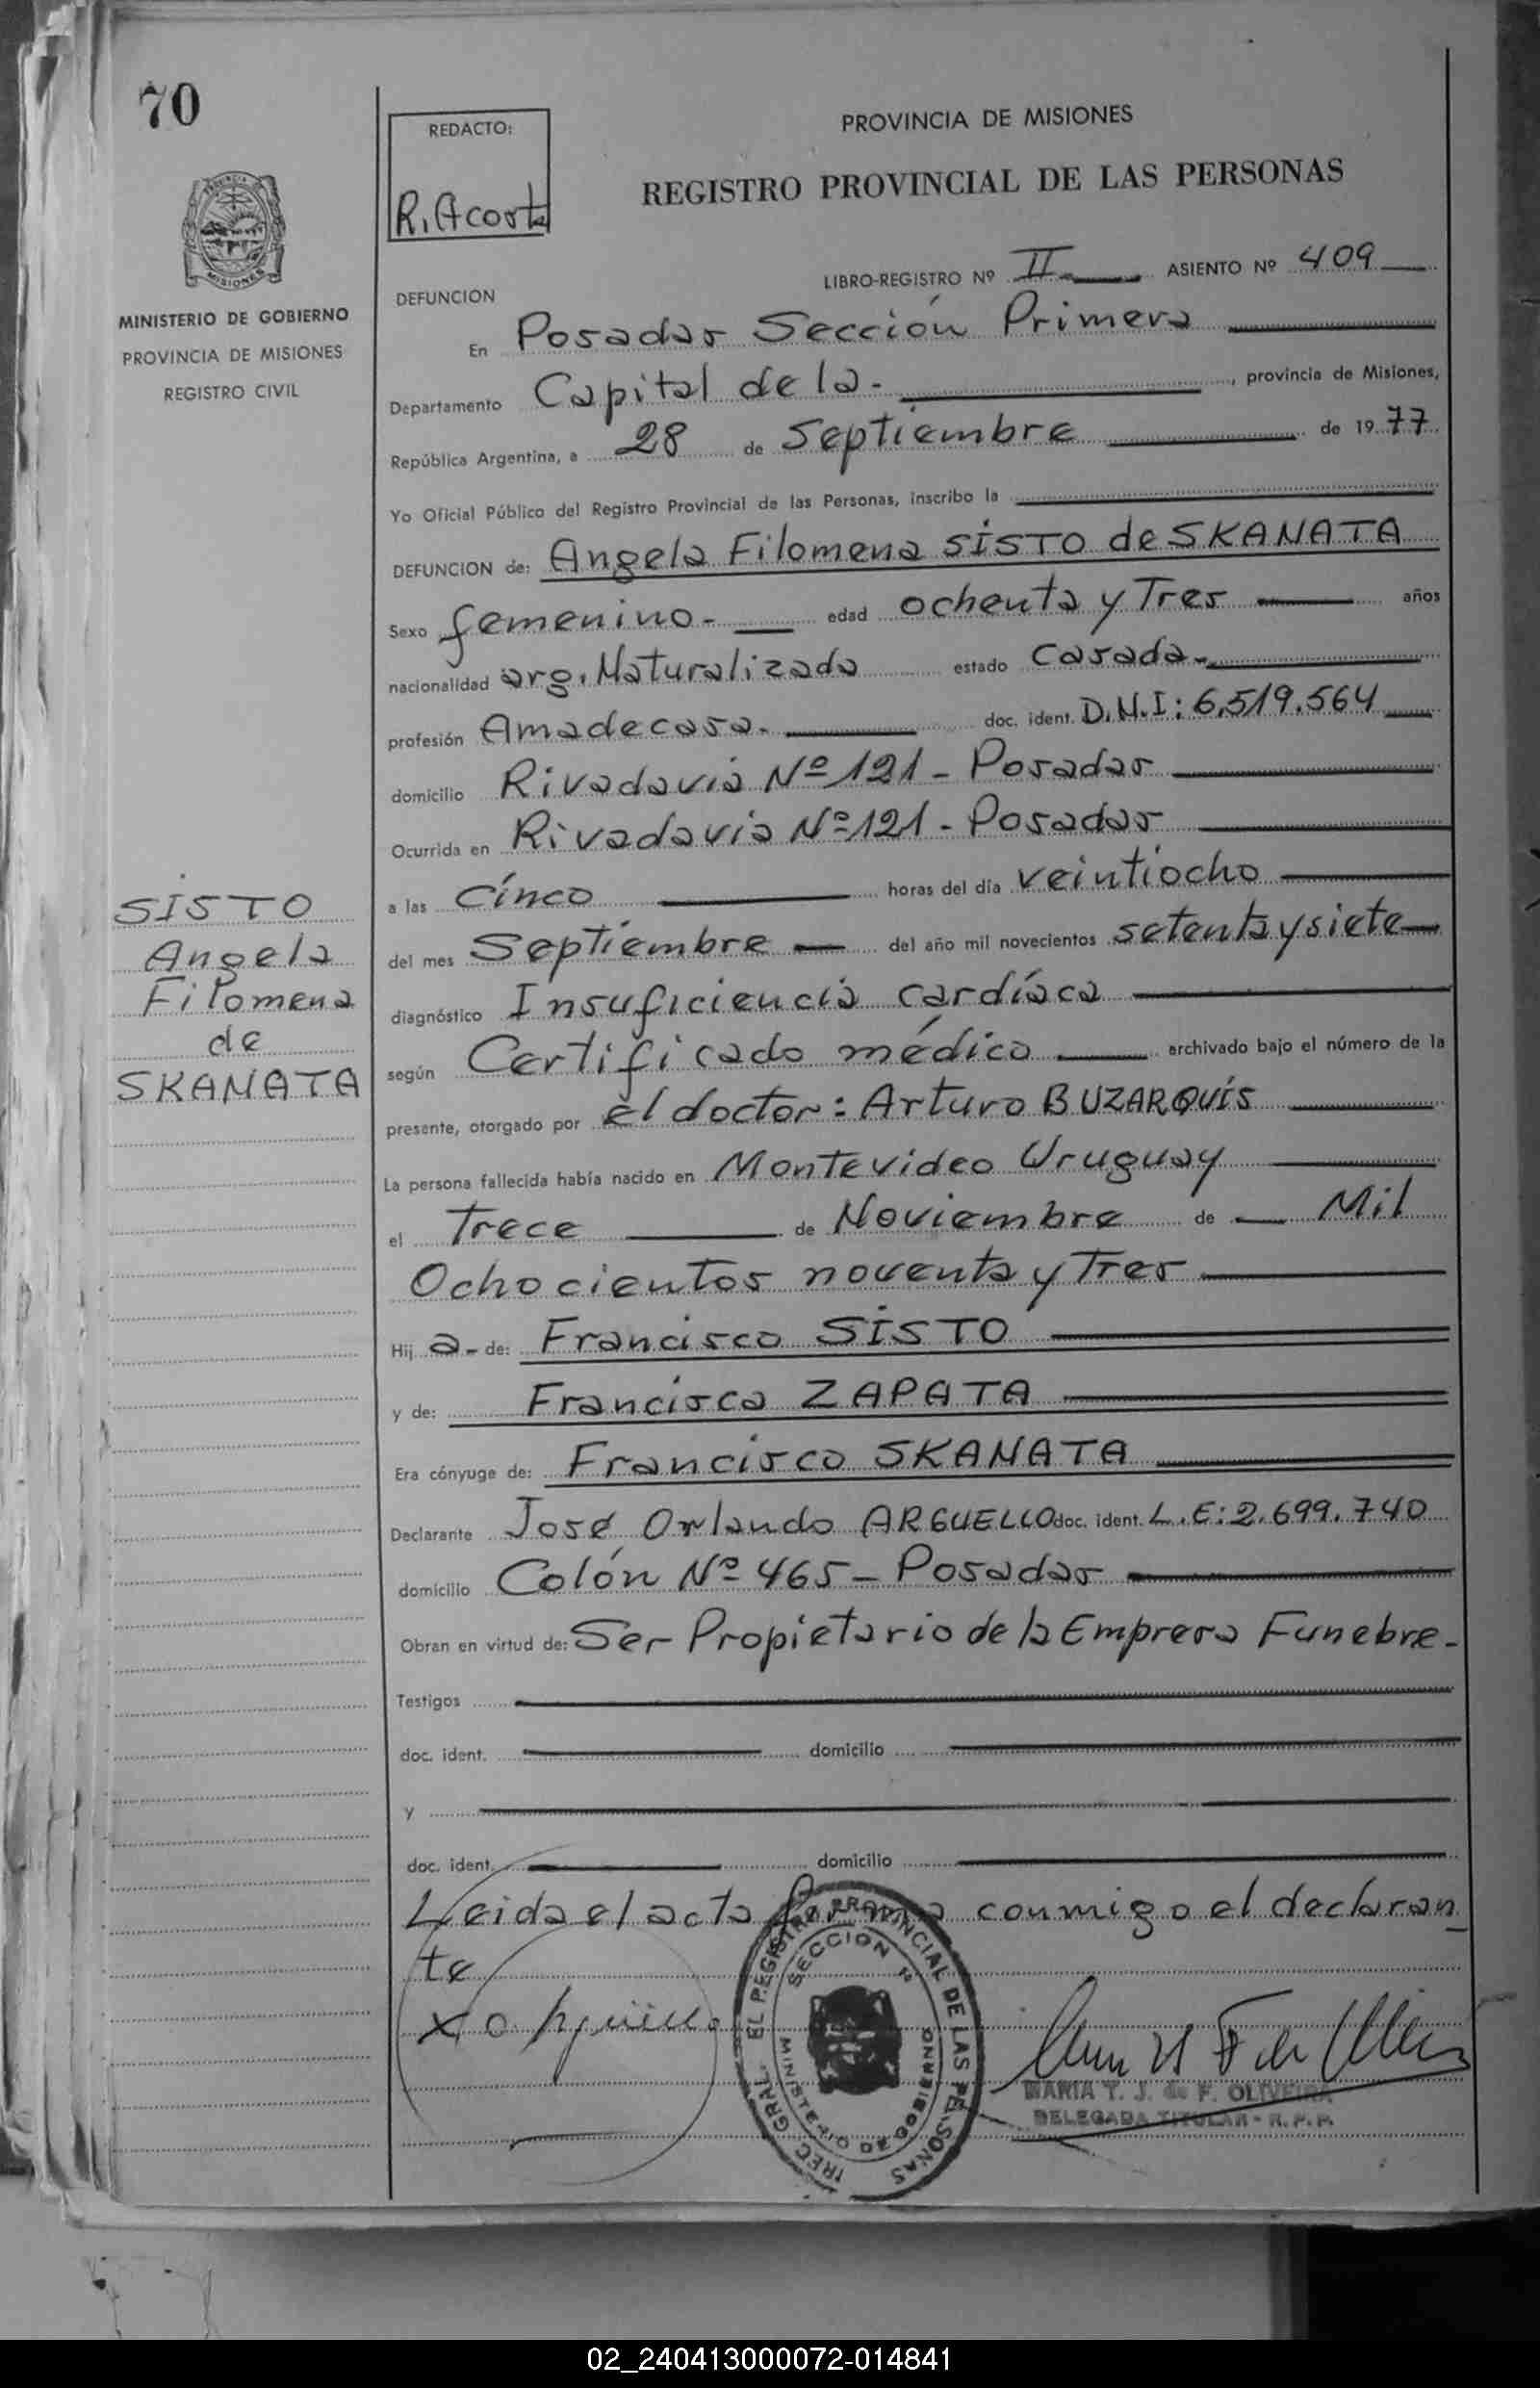 70
REDACTO:
R. Acosta
PROVINCIA DE MISIONES
REGISTRO PROVINCIAL DE LAS PERSONAS
LIBRO-REGISTRO Nº II ASIENTO Nº 409
MINISTERIO DE GOBIERNO
PROVINCIA DE MISIONES
REGISTRO CIVIL
DEFUNCION
En Posadas Sección Primera
Departamento Capital de la.- , provincia de Misiones,
República Argentina, a 28 de Septiembre de 1977
Yo Oficial Público del Registro Provincial de las Personas, inscribo la
DEFUNCION de: Angela Filomena SISTO de SKANATA
Sexo femenino.- edad ochenta y Tres años
nacionalidad arg. Naturalizada estado casada.-
profesión Amadecasa.- doc. ident. D.N.I: 6.519.564
domicilio Rivadavia Nº 121 - Posadas
Ocurrida en Rivadavia Nº 121 - Posadas
a las Cinco horas del día veintiocho
del mes Septiembre del año mil novecientos setenta y siete
diagnóstico Insuficiencia cardíaca
según Certificado médico archivado bajo el número de la
presente, otorgado por el doctor: Arturo BUZARQUÍS
La persona fallecida había nacido en Montevideo Uruguay
el Trece de Noviembre de Mil
Ochocientos noventa y Tres
Hij a- de: Francisco SISTO
y de: Francisca ZAPATA
Era cónyuge de: Francisco SKANATA
Declarante José Orlando ARGUELLO doc. ident. L.E: 2.699.740
domicilio Colón Nº 465 - Posadas
Obran en virtud de: Ser Propietario de la Empresa Funebre.-
Testigos
doc. ident. domicilio
y
doc. ident. domicilio
Leida el acta firma conmigo el declaran
te
SISTO
Angela
Filomena
de
SKANATA
EL REGISTRO PROVINCIAL DE LAS PERSONAS
SECCION 1ª
MINISTERIO DE GOBIERNO
MARIA T. J. de F. OLIVEIRA
DELEGADA TITULAR - R. P. P.
02_240413000072-014841